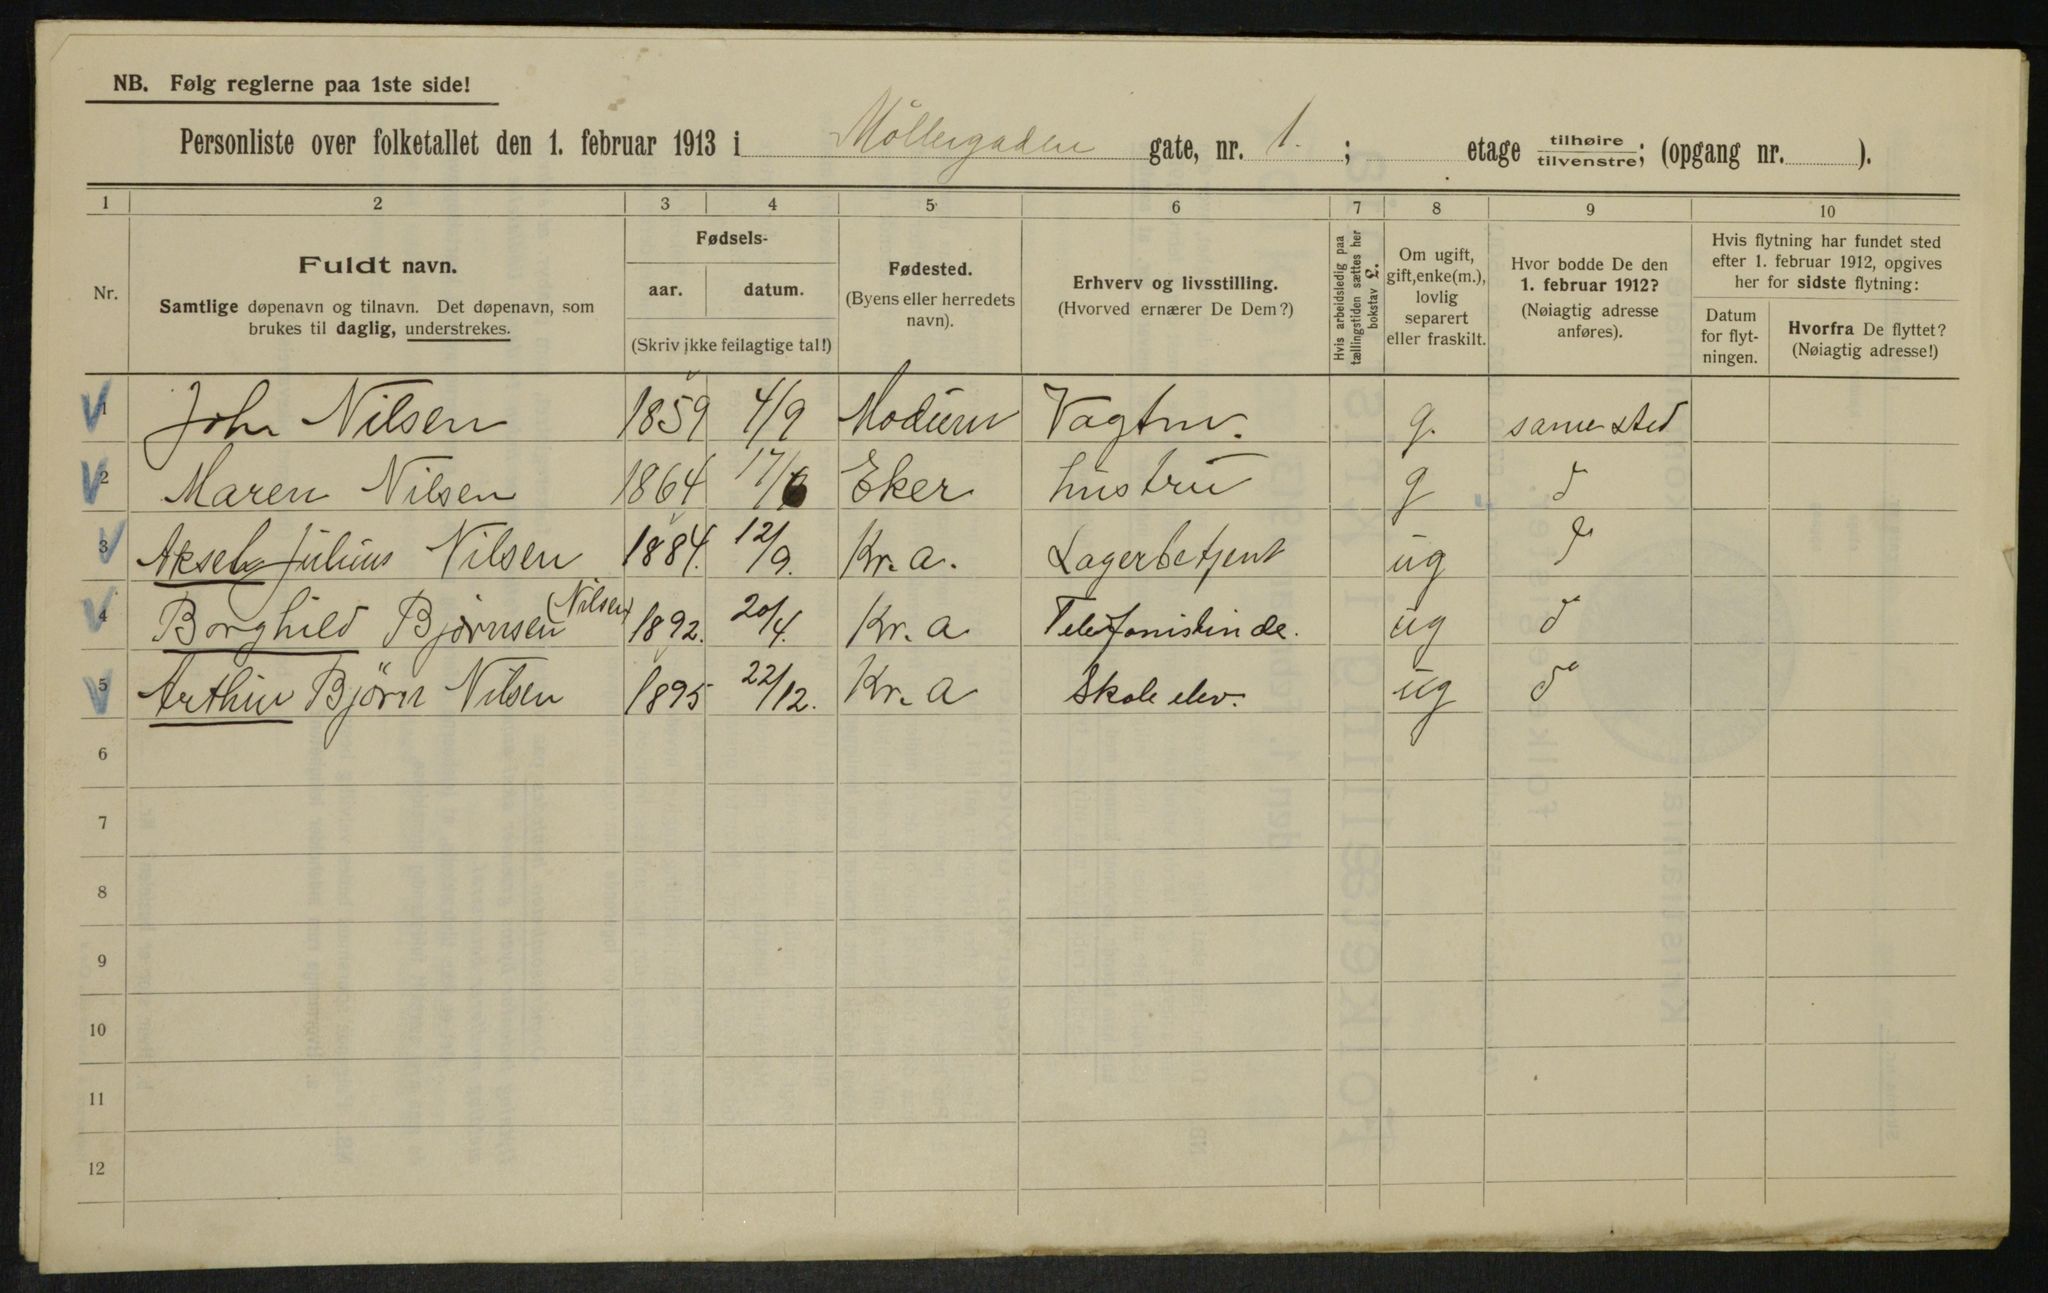 NB. Følg reglerne paa 1ste side!
Personliste over folketallet den 1. februar 1913 i Møllergaden gate, nr. 1. ; etage tilhøire tilvenstre; (opgang nr. ).
1 2 3 4 5 6 7 8 9 10
Nr.
Fuldt navn.
Samtlige døpenavn og tilnavn. Det døpenavn, som
brukes til daglig, understrekes.
Fødsels-
aar. datum.
(Skriv ikke feilagtige tal!)
Fødested.
(Byens eller herredets
navn).
Erhverv og livsstilling.
(Hvorved ernærer De Dem?)
Hvis arbeidsledig paa
tællingstiden sættes her
bokstav L.
Om ugift,
gift, enke(m.),
lovlig
separert
eller fraskilt.
Hvor bodde De den
1. februar 1912?
(Nøiagtig adresse
anføres).
Hvis flytning har fundet sted
efter 1. februar 1912, opgives
her for sidste flytning:
Datum
for flyt-
ningen.
Hvorfra De flyttet?
(Nøiagtig adresse!)
1 John Nilsen 1859 4/9 Modum Vagtm. g. samested
2 Maren Nilsen 1864 17/6 Eker hustru g do
3 Aksel Julius Nilsen 1884. 12/9. Kr.a. Lagerbetjent ug do
4 Borghild Bjørnsen (Nilsen) 1892. 20/4. Kr.a Telefonistinde. ug do
5 Arthur Bjørn Nilsen 1895 22/12. Kr.a Skoleelev. ug do
6
7
8
9
10
11
12